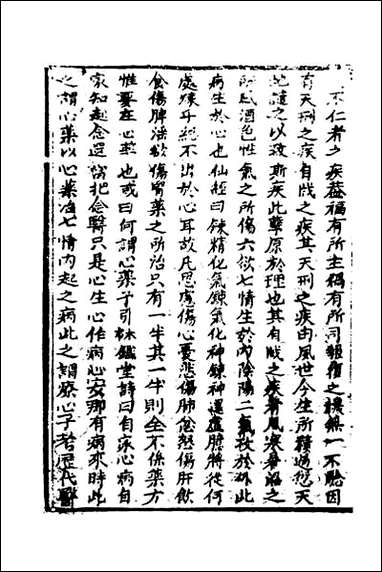 不仁者之疾蓋福有所主禍有所司報復之機無一不驗因
有天刑之疾自戕之疾其天刑之疾由夙世今生所積過愆天
地譴之以致斯疾此孽原於理也其自戕之疾者風寒暑濕之
所感酒色性氣之所傷六欲七情生於內陰陽二氣攻於外此
病生於心也仙經曰錬精化氣錬氣化神錬神還虛將從何
處煉乎總不出於心耳故凡思慮傷心憂悲傷肺忿怒傷肝飲
食傷脾淫欲傷腎藥之所治只有一半其一半則全不係藥方
惟要在心藥也或曰何謂心藥予引林鑑堂詩曰自家心病自
家知起念還當把念醫只是心生心作病心安那有病來時此
之謂心藥以心藥治七情內起之病此之謂療心予考歷代醫